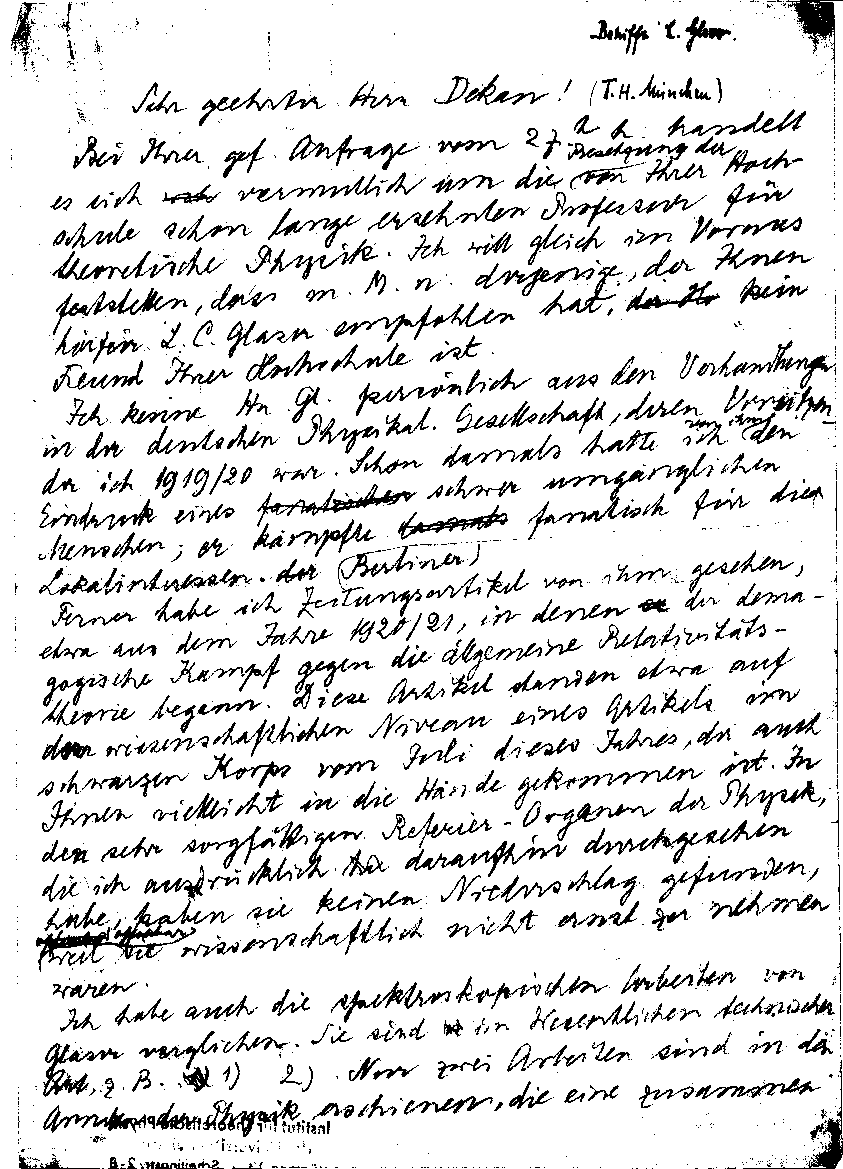 Betrifft L. Glaser.
Sehr geehrter Herr Dekan! (T.H. München)
Bei Ihrer gef. Anfrage vom 27. handelt
es sich vermutlich um die Besetzung der von Ihrer Hoch-
schule schon lange ersehnten Professur für
theoretische Physik. Ich will gleich im Voraus
feststellen, dass m. M. n. derjenige, der Ihnen
hierfür L. C. Glaser empfohlen hat, der Ho kein
Freund Ihrer Hochschule ist.
Ich kenne Hn Gl. persönlich aus den Verhandlungen
in der deutschen Physikal. Gesellschaft, deren Vorsitzen-
der ich 1919/20 war. Schon damals hatte ich von ihm den
Eindruck eines fanatischen schwer umgänglichen
Menschen; er kämpfte damals fanatisch für die
Lokalinteressen der (Berliner)
Ferner habe ich Zeitungsartikel von ihm gesehen,
etwa aus dem Jahre 1920/21, in denen der dema-
gogische Kampf gegen die allgemeine Relativitäts-
theorie begann. Diese Artikel standen etwa auf
dem wissenschaftlichen Niveau eines Artikels im
schwarzen Korps vom Juli dieses Jahres, der auch
Ihnen vielleicht in die Hände gekommen ist. In
den sehr sorgfältigen Referier-Organen der Physik,
die ich ausdrücklich daraufhin durchgesehen
habe, haben sie keinen Niederschlag gefunden,
weil sie wissenschaftlich nicht ernst zu nehmen
waren.
Ich habe auch die spektroskopischen Arbeiten von
Glaser verglichen. Sie sind im Wesentlichen technischer
Art, z. B. 1) 2.) Nur zwei Arbeiten sind in den
Annalen der Physik erschienen, die eine zusammen